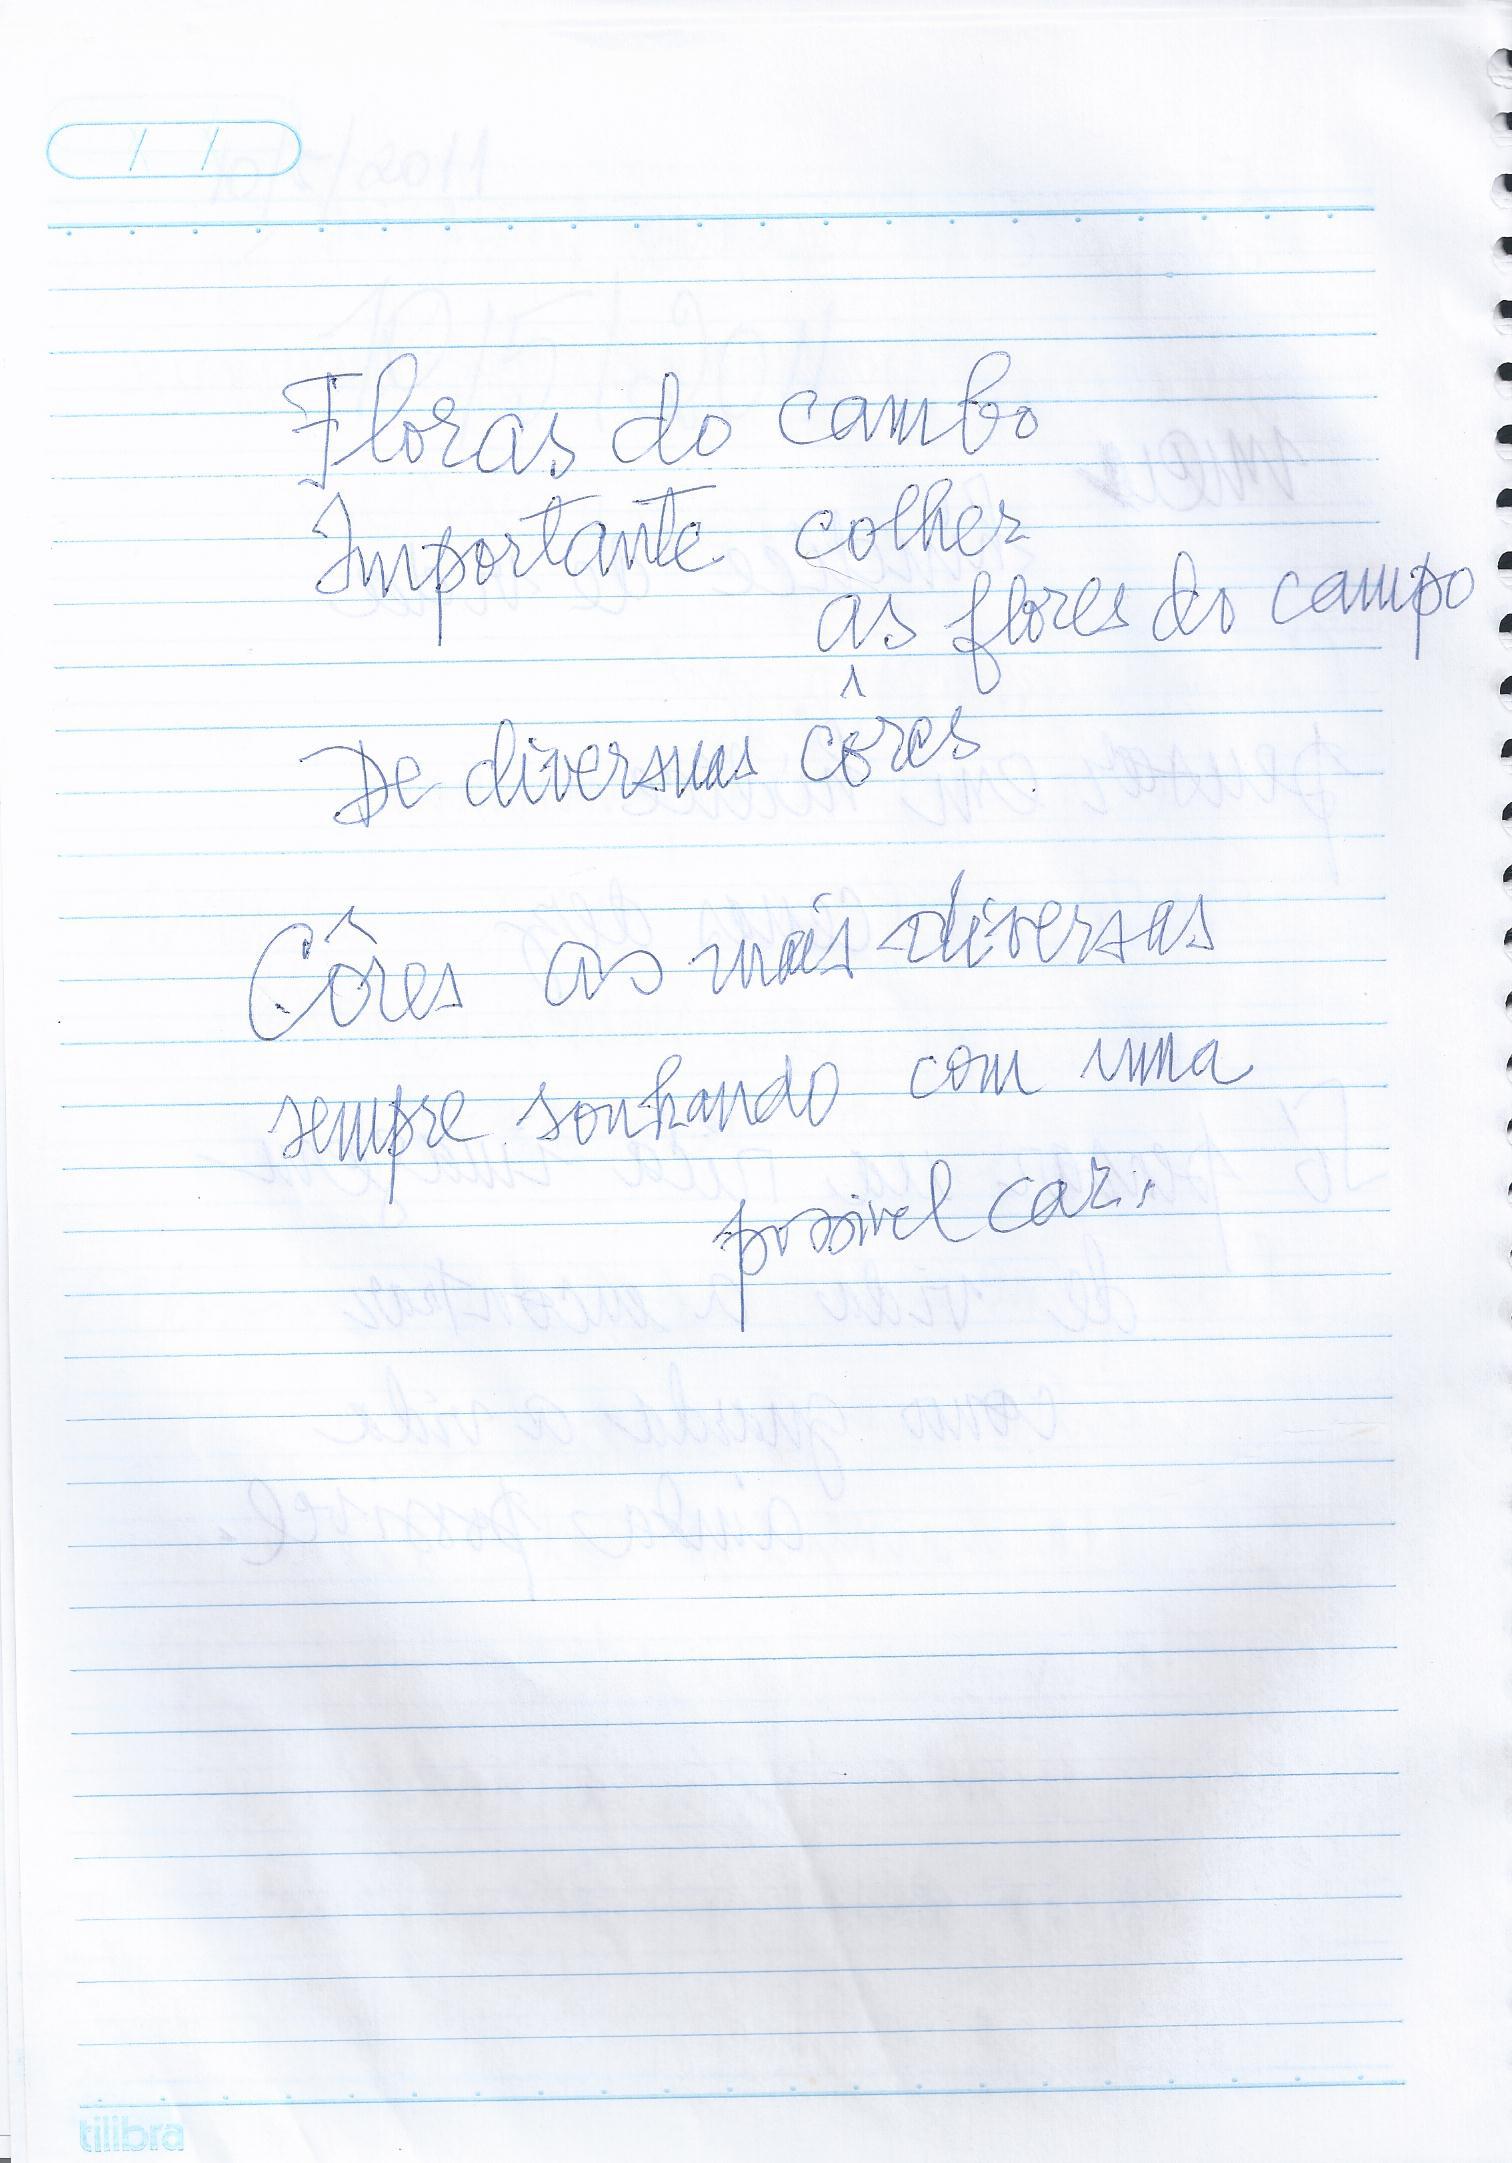 Floras do cambo
Importante colher
as flores do campo
De diversuas côres
Côres as mais diversas
sempre sonhando com uma
possivel cor.
tilibra